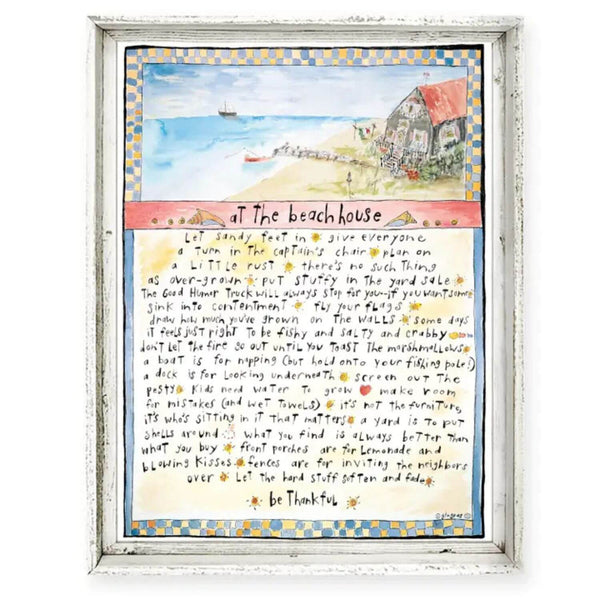 at the beach house
Let sandy feet in give everyone
a turn in the captain's chair plan on
a little rust there's no such thing
as over-grown put stuffy in the yard sale
The Good Humor Truck will always stop for you-if you want some
sink into contentment fly your flags
draw how much you've grown on the walls some days
it feels just right to be fishy and salty and crabby
don't let the fire go out until you toast the marshmallows
a boat is for napping (but hold onto your fishing pole!)
a dock is for looking underneath screen out the
pests kids need water to grow make room
for mistakes (and wet towels) it's not the furniture,
it's who's sitting in it that matters a yard is to put
shells around what you find is always better than
what you buy front porches are for lemonade and
blowing kisses fences are for inviting the neighbors
over Let the hard stuff soften and fade
be thankful